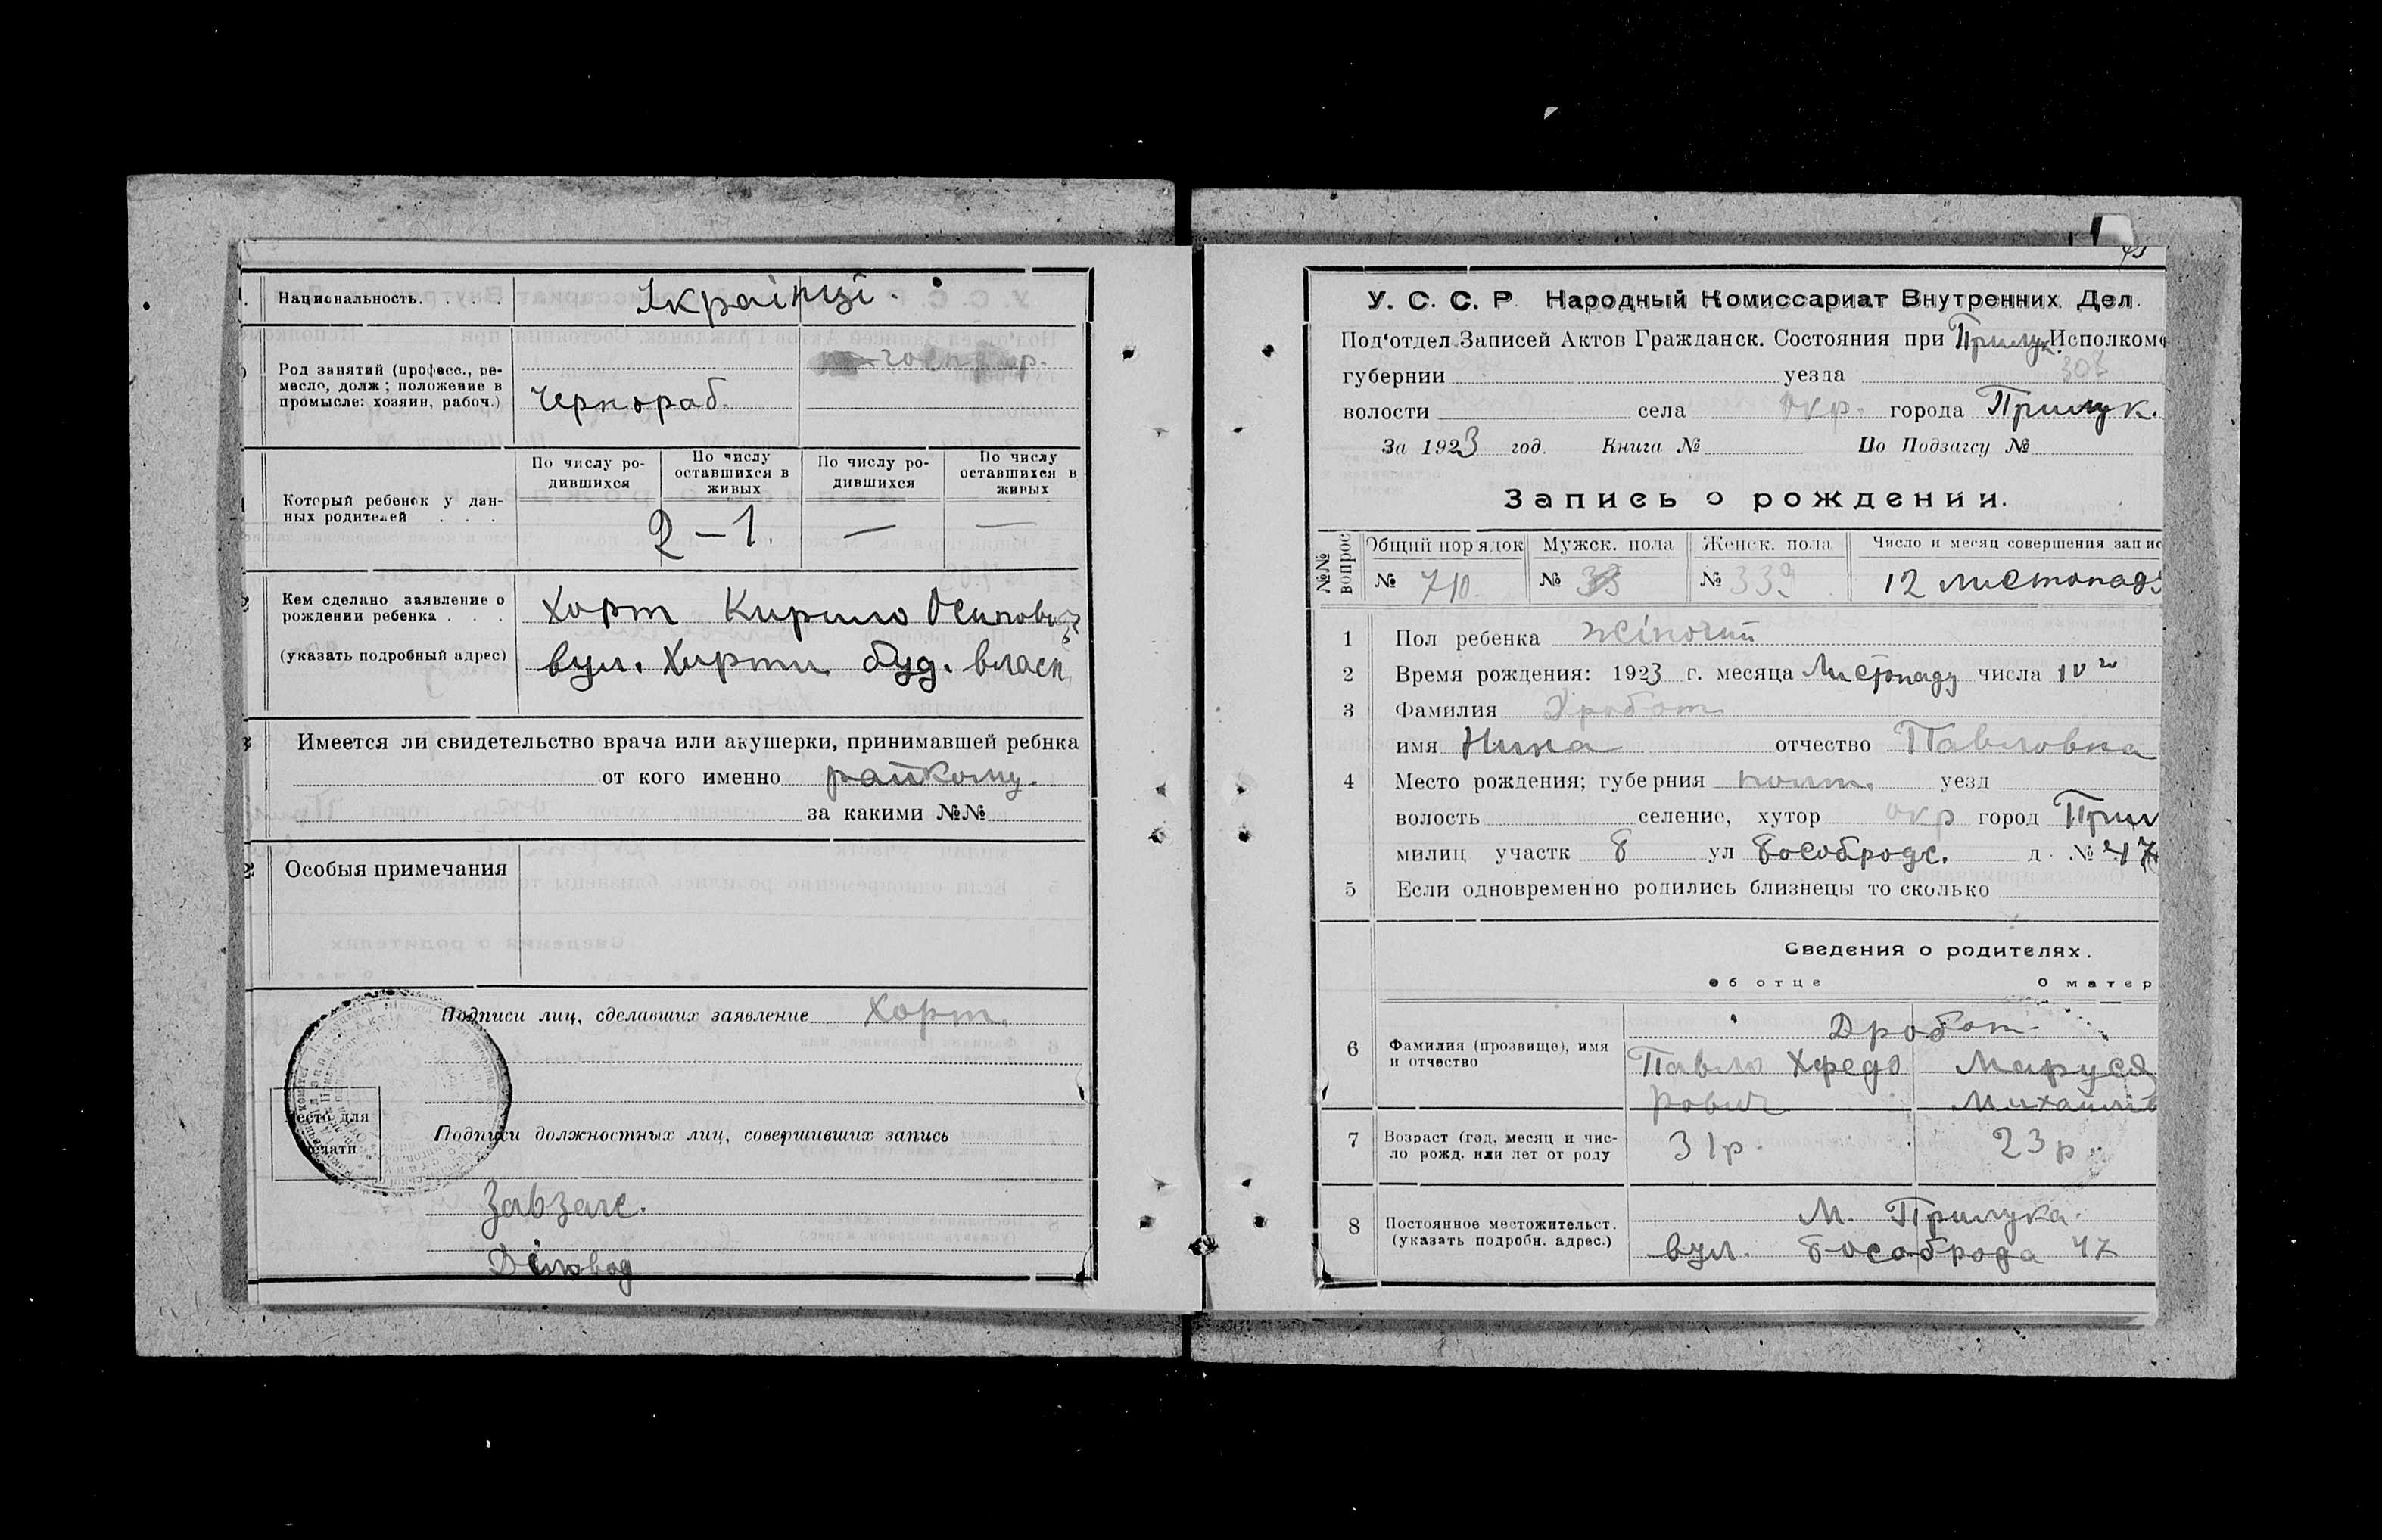 Национальность. . . .
Українці.
Род занятий (професс., ре-
месло, долж; положение в
промысле: хозяин, рабоч.)
Чернораб.
По числу ро-
дившихся
По числу
оставшихся в
живых
По числу ро-
дившихся
По числу
оставшихся в
живых
Который ребенок у дан-
ных родителей . . .
2 – 1. — —
Кем сделано заявление о
рождении ребенка . . .
(указать подробный адрес)
Хорт Кирило Осипович
вул. Хорти буд. власн
Имеется ли свидетельство врача или акушерки, принимавшей ребнка
от кого именно райкому.
за какими №№
Особыя примечания
Подписи лиц, сделавших заявление Хорт.
Место для
печати
Подписи должностных лиц, совершивших запись
Завзагс.
Діловод
У. С. С. Р. Народный Комиссариат Внутренних Дел.
Под‘отдел Записей Актов Гражданск. Состояния при Прилук. Исполком
губернии уезда
волости села окр. города Прилук.
За 1923 год. Книга № По Подзагсу №
Запись о рождении.
№№ вопрос
Общий порядок Мужск. пола Женск. пола Число и месяц совершения запис
№ 710. № 33 № 339 12 листопаду
1 Пол ребенка жіночий
2 Время рождения: 1923 г. месяца Листопаду числа 10го
3 Фамилия Дробот
имя Нина отчество Павловна
4 Место рождения; губерния полт. уезд
волость селение, хутор окр город Прил
милиц участк б ул Бособродс. д. № 47
5 Если одновременно родились близнецы то сколько
Сведения о родителях.
об отце О матер
6 Фамилия (прозвище), имя
и отчество
Дробот
Павло Хфедо Маруся
рович Михайлів
7 Возраст (год, месяц и чис-
ло рожд. или лет от роду
31р. 23р.
8 Постоянное местожительст.
(указать подробн. адрес.)
М. Прилука.
вул. Бособрода 47